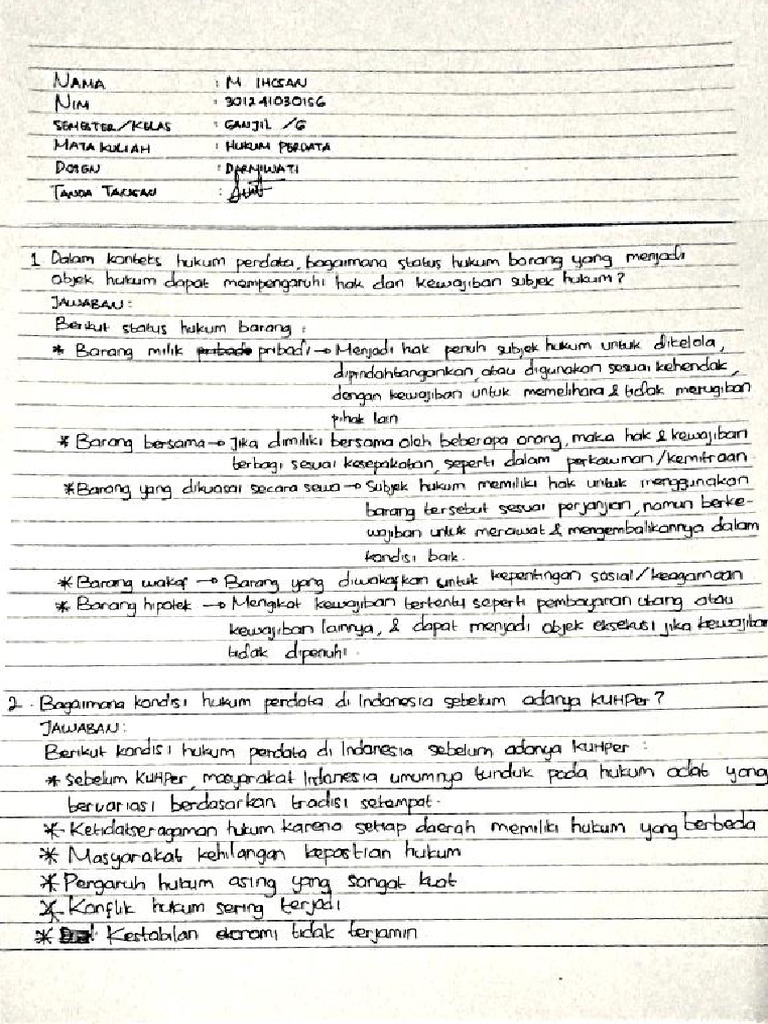 NAMA : M IHCSAN
NIM : 301241030156
SEMESTER/KELAS : GANJIL /G
MATA KULIAH : HUKUM PERDATA
DOSEN : DARMIWATI
TANDA TANGAN :
1 Dalam konteks hukum perdata, bagaimana status hukum barang yang menjadi
objek hukum dapat mempengaruhi hak dan kewajiban subjek hukum?
JAWABAN:
Berikut status hukum barang :
* Barang milik pribadi → Menjadi hak penuh subjek hukum untuk dikelola,
dipindahtangankan, atau digunakan sesuai kehendak,
dengan kewajiban untuk memelihara & tidak merugikan
pihak lain
* Barang bersama → Jika dimiliki bersama oleh beberapa orang, maka hak & kewajiban
berbagi sesuai kesepakatan, seperti dalam perkawinan/kemitraan.
* Barang yang dikuasai secara sewa → Subjek hukum memiliki hak untuk menggunakan
barang tersebut sesuai perjanjian, namun berke-
wajiban untuk merawat & mengembalikannya dalam
kondisi baik.
* Barang wakaf → Barang yang diwakafkan untuk kepentingan sosial/keagamaan
* Barang hipotek → Mengikat kewajiban tertentu seperti pembayaran utang atau
kewajiban lainnya, & dapat menjadi objek eksekusi jika kewajiban
tidak dipenuhi.
2. Bagaimana kondisi hukum perdata di Indonesia sebelum adanya KUHPer?
JAWABAN:
Berikut kondisi hukum perdata di Indonesia sebelum adanya KUHPer :
* Sebelum KUHPer, masyarakat Indonesia umumnya tunduk pada hukum adat yang
bervariasi berdasarkan tradisi setempat.
* Ketidakseragaman hukum karena setiap daerah memiliki hukum yang berbeda
* Masyarakat kehilangan kepastian hukum
* Pengaruh hukum asing yang sangat kuat
* Konflik hukum sering terjadi
* Kestabilan ekonomi tidak terjamin